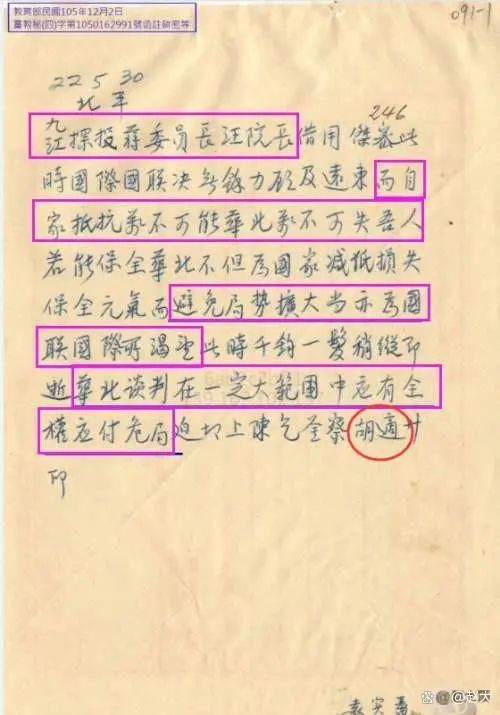 教育部民國105年12月2日
臺教秘(四)字第1050162991號函註銷密等
091-1
22 5 30
北平
246
九江探投蔣委員長汪院長借用傑密此
時國際國联决無餘力顧及遠東而自
家抵抗萬不可能華北萬不可失吾人
若能保全華北不但為國家减低損失
保全元氣而避免局勢擴大当亦為國
联國際所渴望此時千鈞一髮稍縱即
逝華北谈判在一定大範圍中應有全
權应付危局迫切上陳乞荃察胡適卅
印